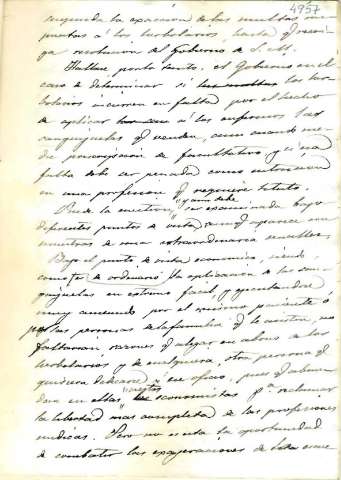 4957
suspendida la exaccion de las multas im-
puestas á los herbolarios, hasta q recai-
ga resolucion del Gobierno de S. M.
Hallase por lo tanto, el Gobierno en el
caso de determinar si los her-
bolarios incurren en falta por el hecho
de aplicar á los enfermos las
sanguijuelas q venden, aun cuando me-
die prescripcion de facultativo, y si esa
falta debe ser penada como intrusion
en una profesion q requiere titulo.
Puede la cuestion, y aun debe ser examinada bajo
diferentes puntos de vista q aparece con
muestras de una extraordinaria sencillez.
Bajo el punto de vista economico, siendo,
como es de ordinario la aplicacion de las san-
guijuelas en extremo facil, y ejecutandose
muy amenudo por el mismo paciente ó
por las personas de la familia q le asisten, no
faltarian razones q alegar en abono de los
herbolarios y de cualquiera otra persona q
quisiera dedicarse á ese oficio, pues q abun-
dan en ellas los economistas pª reclamar
la libertad mas completa de las profesiones
medicas. Pero no es esta la oportunidad
de combatir las exageraciones de esta escue